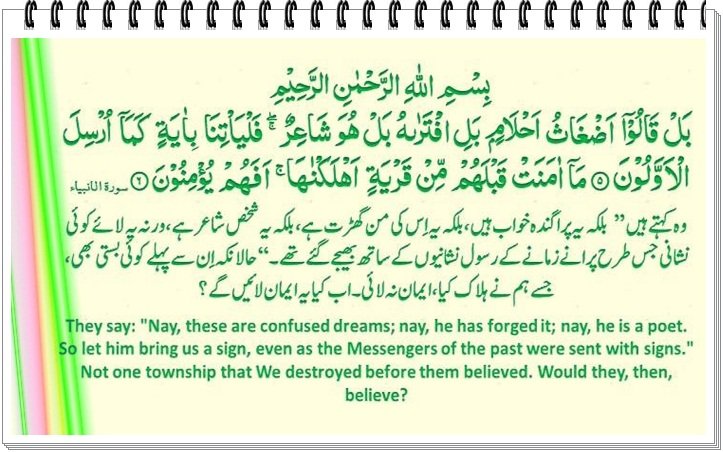 بِسْمِ اللهِ الرَّحْمٰنِ الرَّحِيْمِ
بَلْ قَالُوْٓا اَضْغَاثُ اَحْلَامٍۭ بَلِ افْتَرٰىهُ بَلْ هُوَ شَاعِرٌ ۖۚ فَلْيَاْتِنَا بِاٰيَةٍ كَمَآ اُرْسِلَ
الْاَوَّلُوْنَ ۝۵ مَآ اٰمَنَتْ قَبْلَهُمْ مِّنْ قَرْيَةٍ اَهْلَكْنٰهَا ۚ اَفَهُمْ يُؤْمِنُوْنَ ۝۶ سورة الانبیاء
وہ کہتے ہیں ”بلکہ یہ پراگندہ خواب ہیں، بلکہ یہ اِس کی من گھڑت ہے، بلکہ یہ شخص شاعر ہے، ورنہ یہ لائے کوئی
نشانی جس طرح پرانے زمانے کے رسول نشانیوں کے ساتھ بھیجے گئے تھے۔“ حالانکہ اِن سے پہلے کوئی بستی بھی،
جسے ہم نے ہلاک کیا، ایمان نہ لائی۔ اب کیا یہ ایمان لائیں گے؟
They say: "Nay, these are confused dreams; nay, he has forged it; nay, he is a poet.
So let him bring us a sign, even as the Messengers of the past were sent with signs."
Not one township that We destroyed before them believed. Would they, then,
believe?